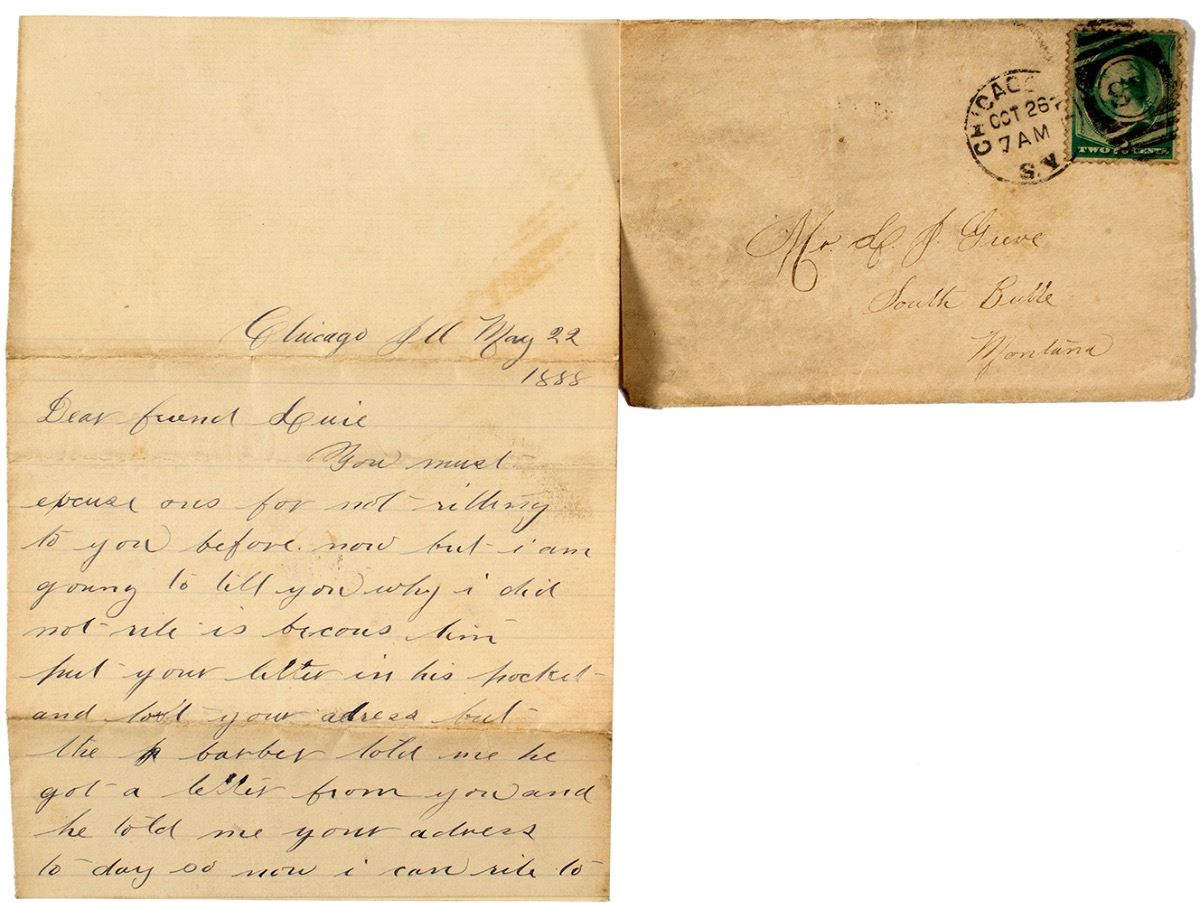 Chicago Ill May 22
1888
Dear friend Luie
You must
excuse ous for not ritting
to you before now but i am
going to tell you why i did
not rite is becous him
put your letter in his pocket
and lost your adress but
the barber told me he
got a letter from you and
he told me your adress
to day so now i can rite to
CHICAGO
OCT 26
7 AM
TWO CENTS
Mr. L. J.
South Butte
Montana